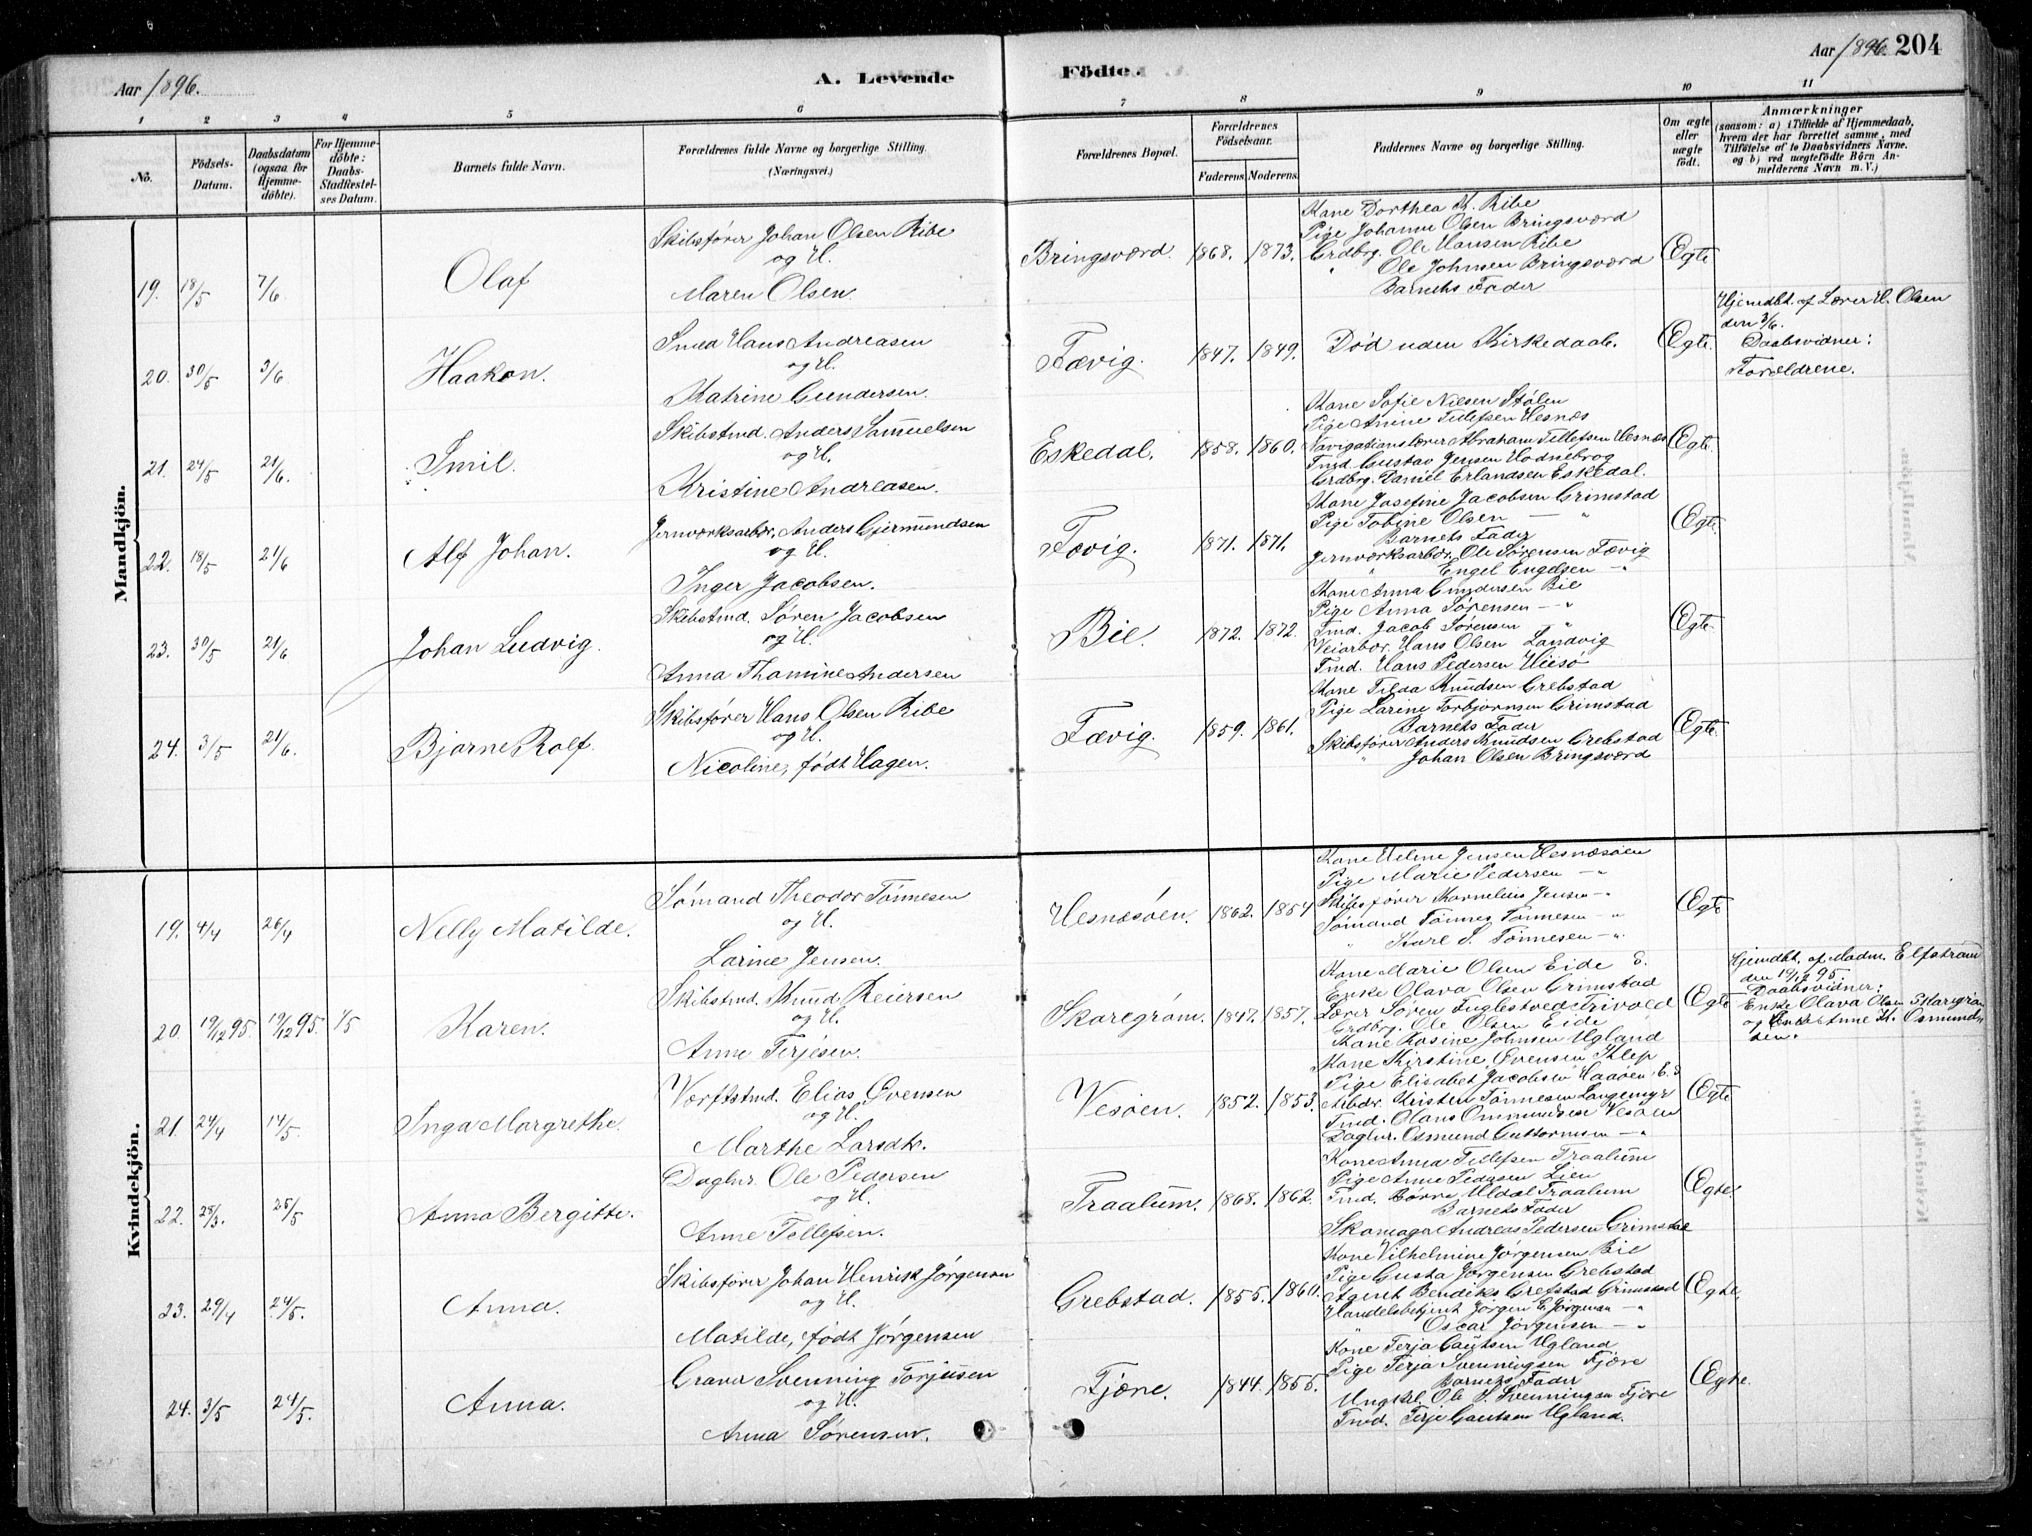 Aar 1896.
A. Levende
Födte.
Aar 1896. 204
1 2 3 4 5 6 7 8 9 10 11
No.
Födsels-Datum.
Daabsdatum (ogsaa for Hjemmedöbte).
For Hjemmedöbte: Daabs-Stadfæstelses Datum.
Barnets fulde Navn.
Forældrenes fulde Navne og borgerlige Stilling. (Næringsvei.)
Forældrenes Bopæl.
Forældrenes Födselsaar.
Faderens. Moderens.
Faddernes Navne og borgerlige Stilling.
Om ægte eller uægte födt.
Anmærkninger
(saasom: a) i Tilfælde af Hjemmedaab, hvem der har forrettet samme, med Tilföielse af to Daabsvidners Navne. og b) ved uægtefödte Börn Anmelderens Navn m. V.)
Mandkjön.
19. 18/5 7/6 Olaf
Skibsfører Johan Olsen Ribe
og H.
Maren Olsen.
Bringsværd. 1868. 1873.
Kone Dorthea K. Ribe
Pige Johanne Olsen Bringsværd
Grdbrg. Ole Hansen Ribe
" Ole Johnsen Bringsværd
Barnets Fader
Ægte
20. 30/5 3/6 Haakon.
Smed Hans Andreasen
og H.
Katrine Gundersen.
Fævig. 1847. 1849.
Død uden Kirkedaab.
Ægte.
Hjemdbt. af Lærer H. Olsen
den 3/6.
Daabsvidner:
Forældrene.
21. 24/5 21/6 Emil.
Skibstmd. Anders Samuelsen
og H.
Kristine Andreasen.
Eskedal. 1858. 1860.
Kone Sofie Nilsen Stølen
Pige Amine Tellefsen Hesnæs
Navigationslærer Abraham Tellefsen Hesnæs
Tmd. Gustav Jensen Hodnebrog
Grdbrg. Daniel Erlandsen Eskedal.
Ægte.
22. 18/5 21/6 Alf Johan.
Jernværksarbdr. Anders Gjermundsen
og H.
Inger Jacobsen.
Fævig. 1871. 1871.
Kone Josefine Jacobsen Grimstad
Pige Tobine Olsen — "
Barnets Fader
Jernværksarbdr. Ole Sørensen Fævig
" Engel Engelsen — "
Ægte.
23. 30/5 21/6 Johan Ludvig.
Skibstmd. Søren Jacobsen
og H.
Anna Thomine Andersen
Bie. 1872. 1872.
Kone Anna Gundersen Bie
Pige Anna Sørensen — "
Tmd. Jacob Sørensen "
Veiarbdr. Hans Olsen Landvig
Tmd. Hans Pedersen Hiesø
Ægte.
24. 3/5 21/6. Bjarne Rolf.
Skibsfører Hans Olsen Ribe
og H.
Nicoline, født Hagen.
Fævig. 1859. 1861.
Kone Tilda Knudsen Grebstad
Pige Larene Torbjørnsen Grimstad
Barnets Fader
Skibsfører Anders Knudsen Grebstad
" Johan Olsen Bringsværd
Ægte.
Kvindekjön.
19. 4/4 26/4 Nelly Matilde.
Sømand Theodor Tønnesen
og H.
Larine Jensen.
Hesnæsøen. 1862. 1854
Kone Helene Jensen Hesnæsøen
Pige Marie Pedersen — "
Skibsfører Kornelius Jensen — "
Sømand Tønnes Tønnesen — "
" Karl S. Tønnesen — "
Ægte
20. 19/12 95. 19/12 95. 4/5 Karen.
Skibstmd. Knud Reiersen
og H.
Anne Terjesen.
Skaregrøm. 1847. 1857.
Kone Marie Olsen Eide E.
Enke Olava Olsen Grimstad
Lærer Søren Fuglestvedt Trivold
Grdbrg. Ole Olsen Eide
Kone Rosine Johnsen Ugland
Ægte
Hjemdbt. af Madm. Elfstrøm
den 19/12 95.
Daabsvidner:
Enke Olava Olsen Skaregrøm
og Enke Anne K. Osmund-
sen.
21. 24/4 14/5. Inga Margrethe.
Værftstmd. Elias Evensen
og H.
Marthe Larsdtr.
Vesøen. 1852. 1853.
Kone Kirstine Evensen Klep
Pige Elisabet Jacobsen Haaøen, E. S
Arbdr. Kristen Tønnesen Langemyr
Tmd. Olaus Ommundsen Vesøen
Daglnr. Osmund Guttormsen — "
Ægte
22. 28/3. 25/5 Anna Bergitte.
Daglnr. Ole Pedersen
og H.
Anne Tellefsen.
Traalum. 1868. 1862.
Kone Anna Tellefsen Traalum
Pige Anne Pedersen Lien
Tmd. Børre Uldal Traalum
Barnets Fader
Skomager Andreas Pedersen Grimstad
Ægte.
23. 29/4 24/5. Anna.
Skibsfører Johan Henrik Jørgensen
og H.
Matilde, født Jørgensen
Grebstad. 1855. 1860.
Kone Vilhelmine Jørgensen Bie
Pige Gusta Jørgensen Grebstad
Agent Bendiks Grefstad Grimstad
Handelsbetjent Jørgen E. Jørgensen — "
" Oscar Jørgensen — "
Ægte.
24. 3/5 24/5. Anna.
Graver Svenning Torjusen
og H.
Anna Sørensen.
Fjære. 1844. 1855.
Kone Terja Gautsen Ugland
Pige Terja Svenningsen Fjære
Barnets Fader
Ungkl. Ole S. Svenningsen Fjære
Tmd. Terje Gautsen Ugland.
Ægte.